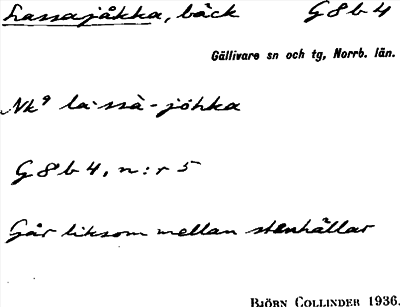 Lassajåkka, bäck G8b4
Gällivare sn och tg, Norrb. län.
Nk⁹ la·ssà-jòhka
G8b4, n:r 5
Går liksom mellan stenhällar
BJÖRN COLLINDER 1936.